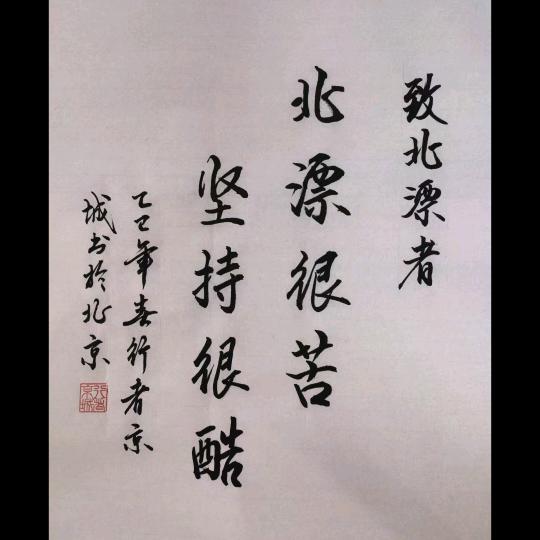 致北漂者
北漂很苦
坚持很酷
乙巳年春行者京
城书于北京
行者京城